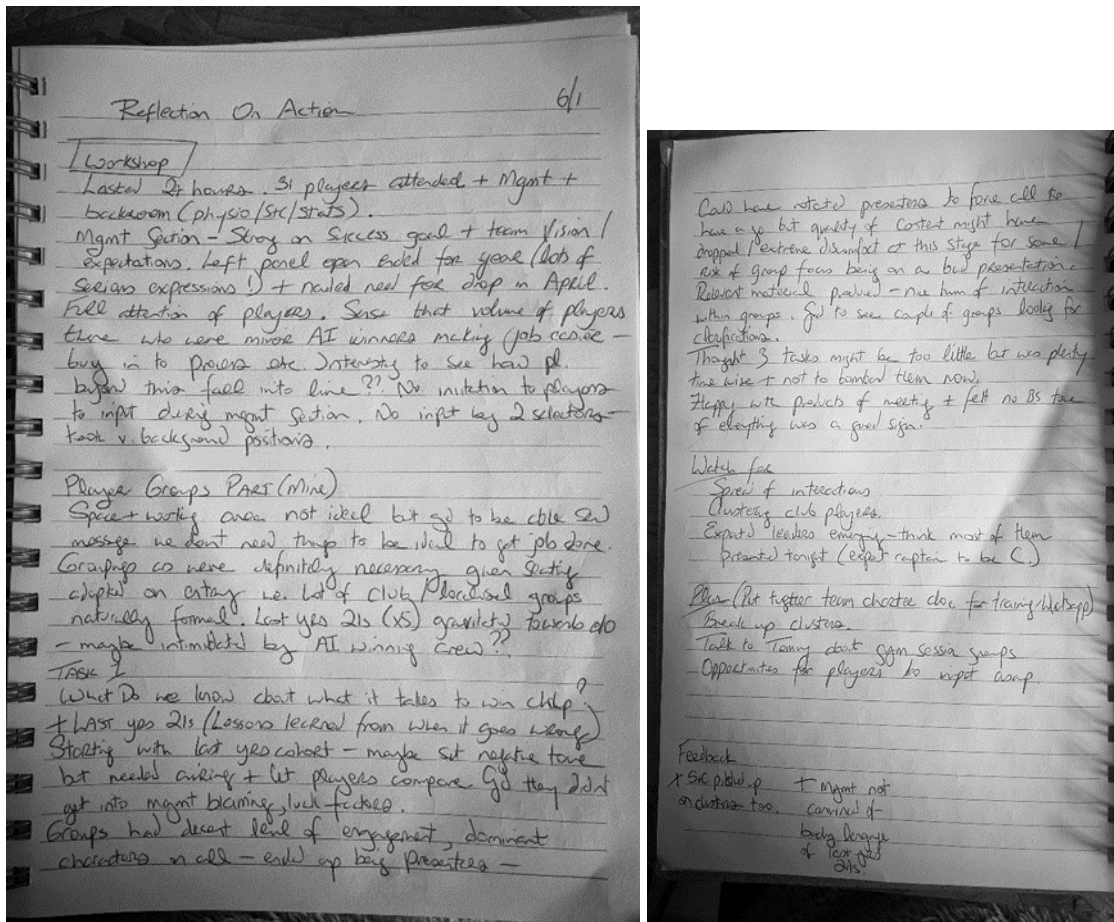 Reflection On Action 6/1
Workshop
Lasted 2+ hours. 31 players attended + Mgmt +
backroom (physio/S+C/stats).
Mgmt Section - Strong on Success goal + team vision /
expectations. Left panel open ended for year (lots of
serious expressions!) + nailed need for drop in April.
Full attention of players. Sense that volume of players
there who were minor AI winners making job easier -
buy in to process etc. Interesting to see how pl.
beyond this fall into line?? No invitation to players
to input during mgmt section. No input by 2 selectors -
took v. background positions.
Player Groups PART (Mine)
Space + working area not ideal but gd to be able send
message we don't need things to be ideal to get job done.
Groupings were definitely necessary given seating
adopted on entry i.e. Lot of club/localised groups
naturally formed. Last yrs 21s (x5) gravitated towards e/o
- maybe intimidated by AI winning crew??
TASK 1
What Do we know about what it takes to win chip?
+ LAST yrs 21s (Lessons learned from when it goes wrong)
Starting with last yrs cohort - maybe set negative tone
but needed airing + let players compare. Gd they didn't
get into mgmt blaming, luck factors.
Groups had decent level of engagement, dominant
characters in all - ended up being presenters -
Could have rotated presenters to force all to
have a go but quality of content might have
dropped / extreme discomfort at this stage for some /
risk of group focus being on a bad presentation.
Relevant material produced - nice hum of interaction
within groups. Gd to see couple of groups looking for
clarifications.
Thought 3 tasks might be too little but was plenty
time wise + not to bombard them now.
Happy with products of meeting + felt no BS tone
of everything was a good sign.
Watch for
Spread of interactions
Clustering club players.
Expected leaders emerging - think most of them
presented tonight (expect captain to be C.)
Plan (Put together team charter doc for training/Whatsapp)
Break up clusters.
Talk to Tommy about gym session groups
Opportunities for players to input asap.
Feedback
* S+C picked up
on clusters too.
+ Mgmt not
convinced of
being
of last yrs
21s.